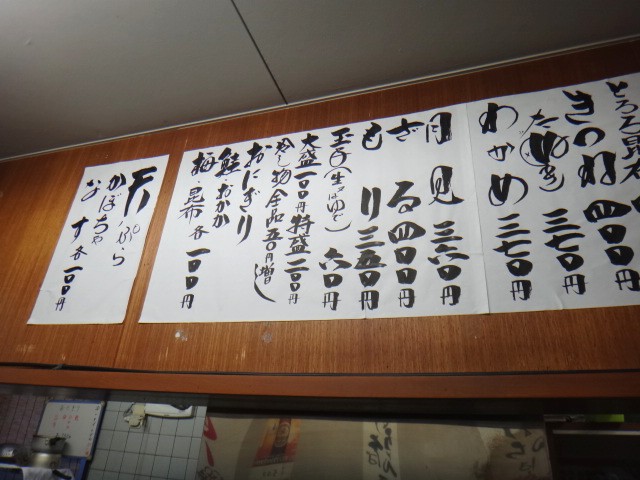 とろろ昆布
きつね 四〇〇円
たぬき 三七〇円
わかめ 三七〇円
月見 三六〇円
ざる 四〇〇円
もり 三五〇円
玉子(生・ゆで) 六〇円
大盛一〇〇円 特盛二〇〇円
冷し物全品五〇円増し
おにぎり
鮭 おかか
梅 昆布 各一〇〇円
天ぷら
かぼちゃ
なす 各一〇〇円